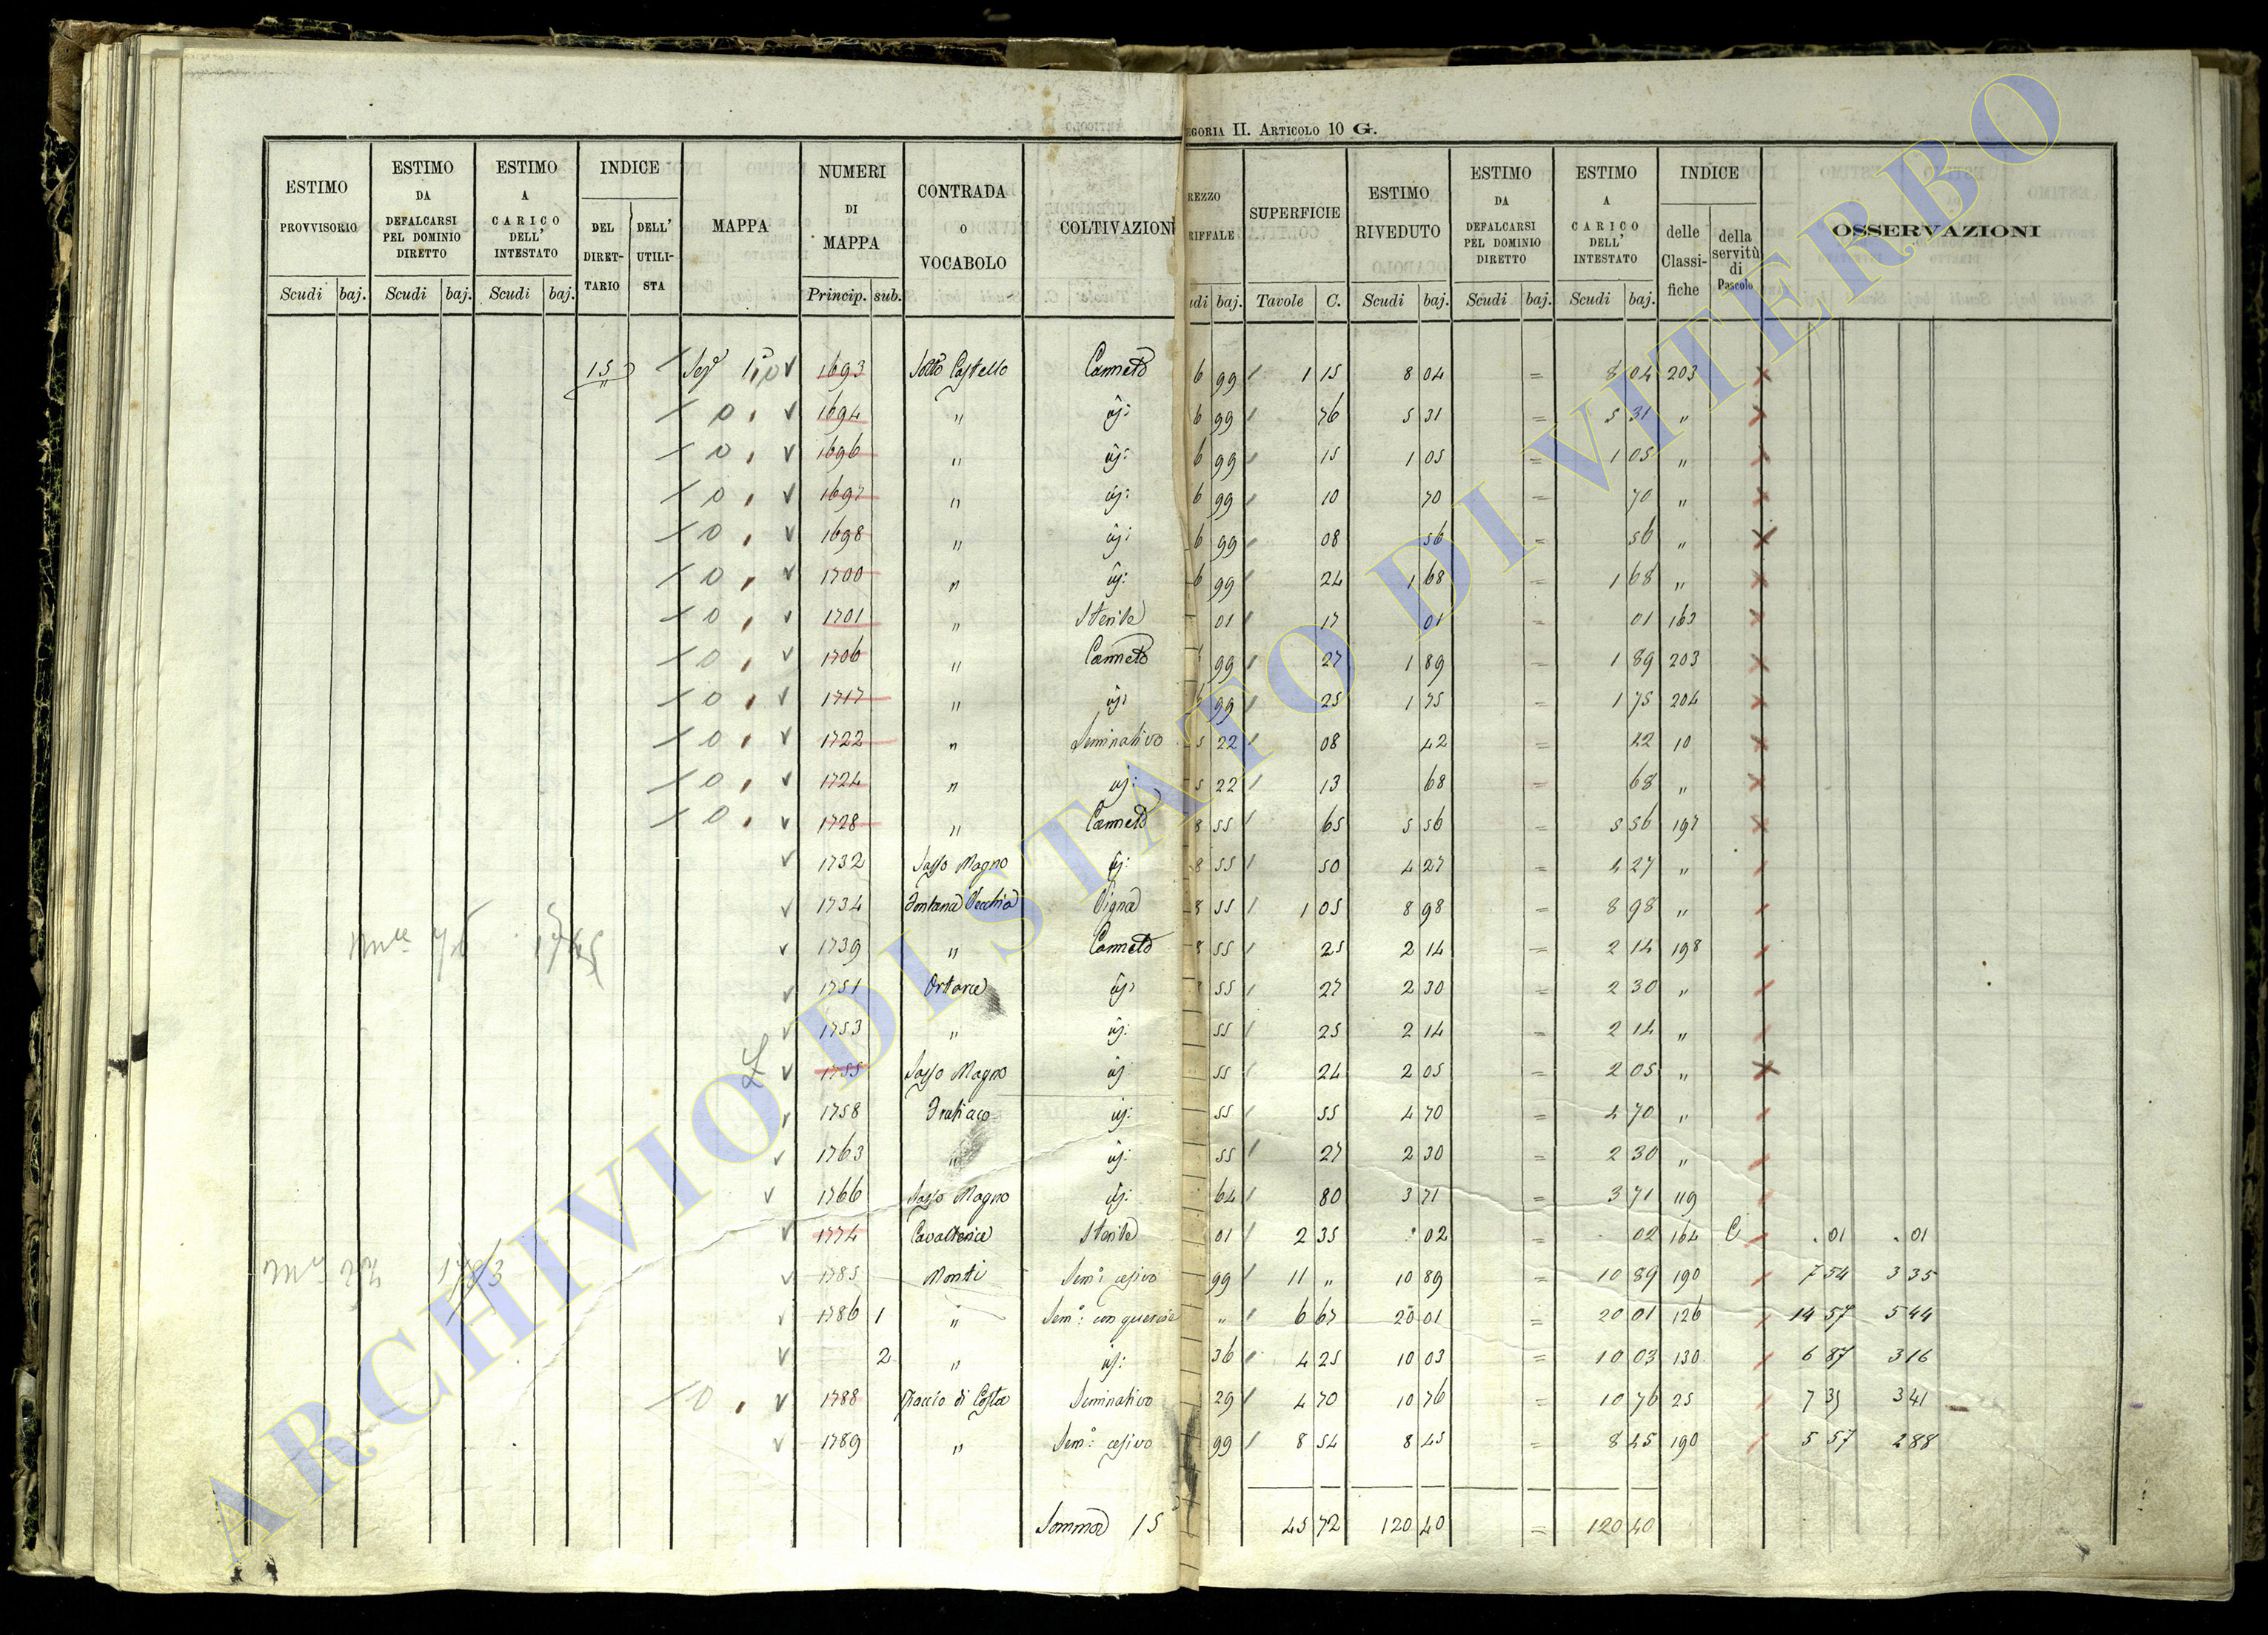 EGORIA II. ARTICOLO 10 G.
ESTIMO PROVVISORIO ESTIMO DA DEFALCARSI PEL DOMINIO DIRETTO ESTIMO A CARICO DELL' INTESTATO INDICE DEL DIRET-TARIO DELL' UTILI-STA MAPPA NUMERI DI MAPPA CONTRADA O VOCABOLO COLTIVAZION REZZO RIFFALE SUPERFICIE ESTIMO RIVEDUTO ESTIMO DA DEFALCARSI PEL DOMINIO DIRETTO ESTIMO A CARICO DELL' INTESTATO INDICE delle Classi-fiche della servitù di Pascolo OSSERVAZIONI
Scudi baj. Scudi baj. Scudi baj. Princip. sub. udi baj. Tavole C. Scudi baj. Scudi baj. Scudi baj.
15 1693 Sotto Castello Canneto 6 99 1 15 8 04 = 8 04 203
1694 " 6 99 76 5 31 = 5 31 "
1696 " 6 99 15 1 05 = 1 05 "
1697 " 6 99 10 70 = 70 "
1698 " 6 99 08 56 = 56 "
1700 " 6 99 24 1 68 = 1 68 "
1701 " Sterile 01 17 01 = 01 163
1706 " Canneto 99 27 1 89 = 1 89 203
1717 " 6 99 25 1 75 = 1 75 204
1722 " Seminativo 5 22 08 42 = 42 10
1724 " 5 22 13 68 = 68 "
1728 " Canneto 8 55 65 5 56 = 5 56 197
1732 Sasso Magno 8 55 50 4 27 = 4 27 "
1734 Fontana Vecchia Vigna 8 55 1 05 8 98 = 8 98 "
1739 " Canneto 8 55 25 2 14 = 2 14 198
1751 Ortare 55 27 2 30 = 2 30 "
1753 " 55 25 2 14 = 2 14 "
1755 Sasso Magno 55 24 2 05 = 2 05 "
1758 55 55 4 70 = 4 70 "
1763 " 55 27 2 30 = 2 30 "
1766 Sasso Magno 64 80 3 71 = 3 71 119
1774 Sterile 01 2 35 02 = 02 164 C 01 01
1785 Monti Sem: cesivo 99 11 " 10 89 = 10 89 190 7 54 3 35
1786 1 " Sem: con querce " 6 67 20 01 = 20 01 126 14 57 5 44
2 " 36 4 25 10 03 = 10 03 130 6 87 3 16
1788 di Costa Seminativo 29 4 70 10 76 = 10 76 25 7 35 3 41
1789 " Sem: cesivo 99 8 54 8 45 = 8 45 190 5 57 2 88
Somma 15 45 72 120 40 = 120 40
ARCHIVIO DI STATO DI VITERBO